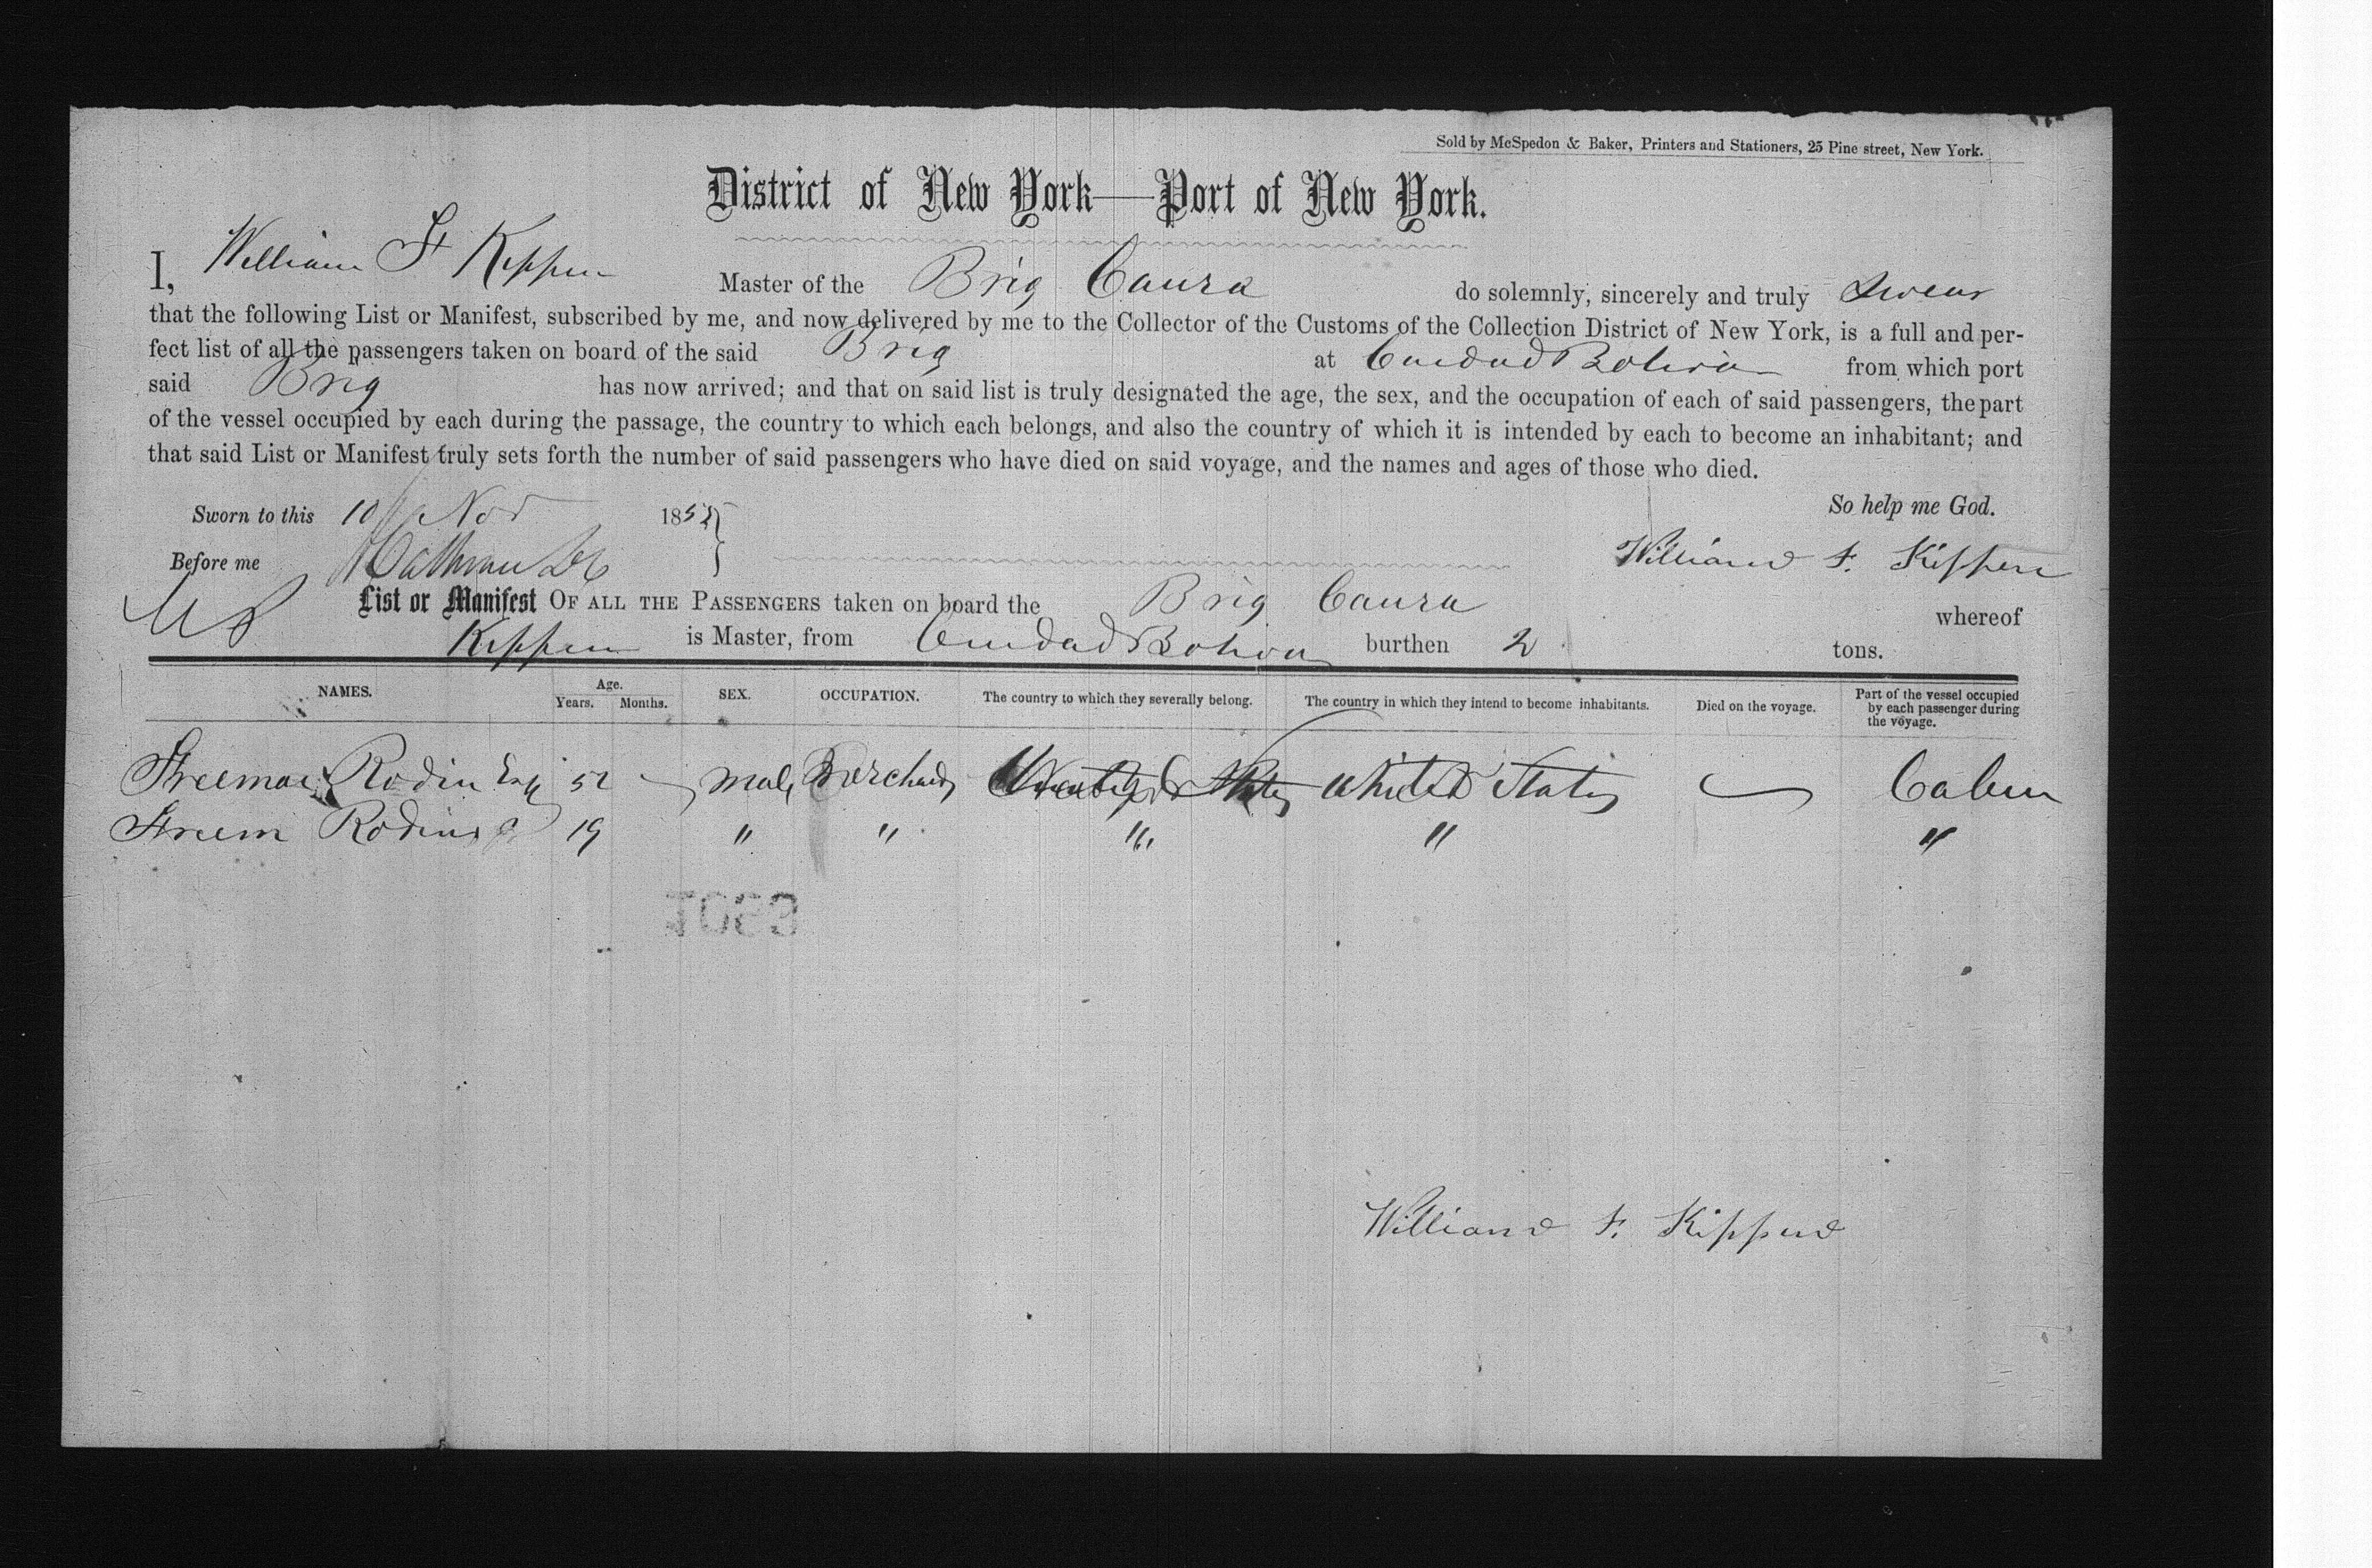 Sold by McSpedon & Baker, Printers and Stationers, 25 Pine street, New York.
District of New York—Port of New York.
I, William F Kippen Master of the Brig Caura do solemnly, sincerely and truly Swear
that the following List or Manifest, subscribed by me, and now delivered by me to the Collector of the Customs of the Collection District of New York, is a full and per-
fect list of all the passengers taken on board of the said Brig at Ciudad Bolivar from which port
said Brig has now arrived; and that on said list is truly designated the age, the sex, and the occupation of each of said passengers, the part
of the vessel occupied by each during the passage, the country to which each belongs, and also the country of which it is intended by each to become an inhabitant; and
that said List or Manifest truly sets forth the number of said passengers who have died on said voyage, and the names and ages of those who died.
Sworn to this 10 Nov 185 So help me God.
Before me William F. Kippen
List or Manifest OF ALL THE PASSENGERS taken on board the Brig Caura whereof
Kippen is Master, from Ciudad Bolivar burthen 2 tons.
NAMES. Age. Years. Months. SEX. OCCUPATION. The country to which they severally belong. The country in which they intend to become inhabitants. Died on the voyage. Part of the vessel occupied by each passenger during the voyage.
Freeman Rodin Esq 52 male Merchant United States Cabin
Rodin 19 " " " " "
William F. Kippen